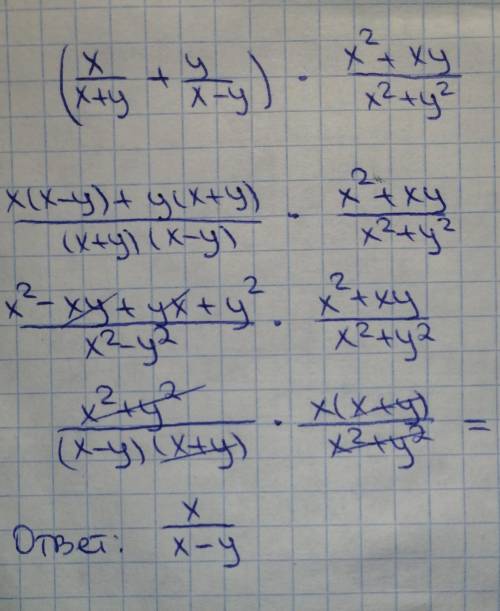 (x/(x+y) + y/(x-y)) · (x²+xy)/(x²+y²)
(x(x-y)+y(x+y))/((x+y)(x-y)) · (x²+xy)/(x²+y²)
(x²-xy+yx+y²)/(x²-y²) · (x²+xy)/(x²+y²)
(x²+y²)/((x-y)(x+y)) · (x(x+y))/(x²+y²) =
Ответ: x/(x-y)